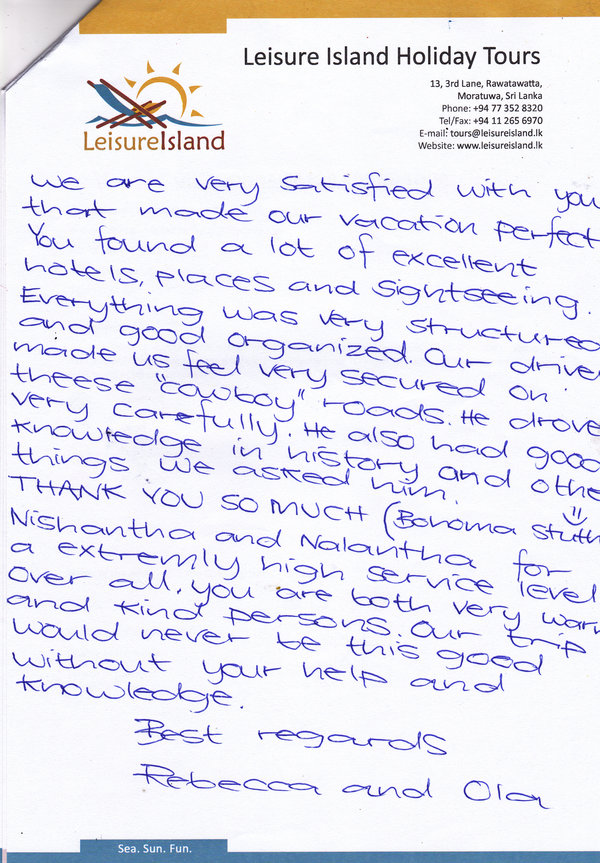 Leisure Island Holiday Tours
13, 3rd Lane, Rawatawatta,
Moratuwa, Sri Lanka
Phone: +94 77 352 8320
Tel/Fax: +94 11 265 6970
E-mail: tours@leisureisland.lk
Website: www.leisureisland.lk
LeisureIsland
we are very satisfied with you
that made our vacation perfect
You found a lot of excellent
hotels, places and sightseeing.
Everything was very structured
and good organized. Our drive
made us feel very secured on
theese "cowboy" roads. He drove
very carefully. He also had good
knowledge in history and othe
things we asked him.
THANK YOU SO MUCH (Bohoma stuth
Nishantha and Nalantha for
a extremly high service level
over all. you are both very warm
and kind persons. Our trip
would never be this good
without your help and
knowledge.
Best regards
Rebecca and Ola
Sea. Sun. Fun.